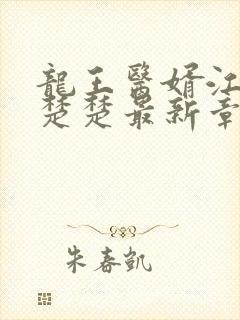 龍王醫婿江
楚楚最新章
朱春凱